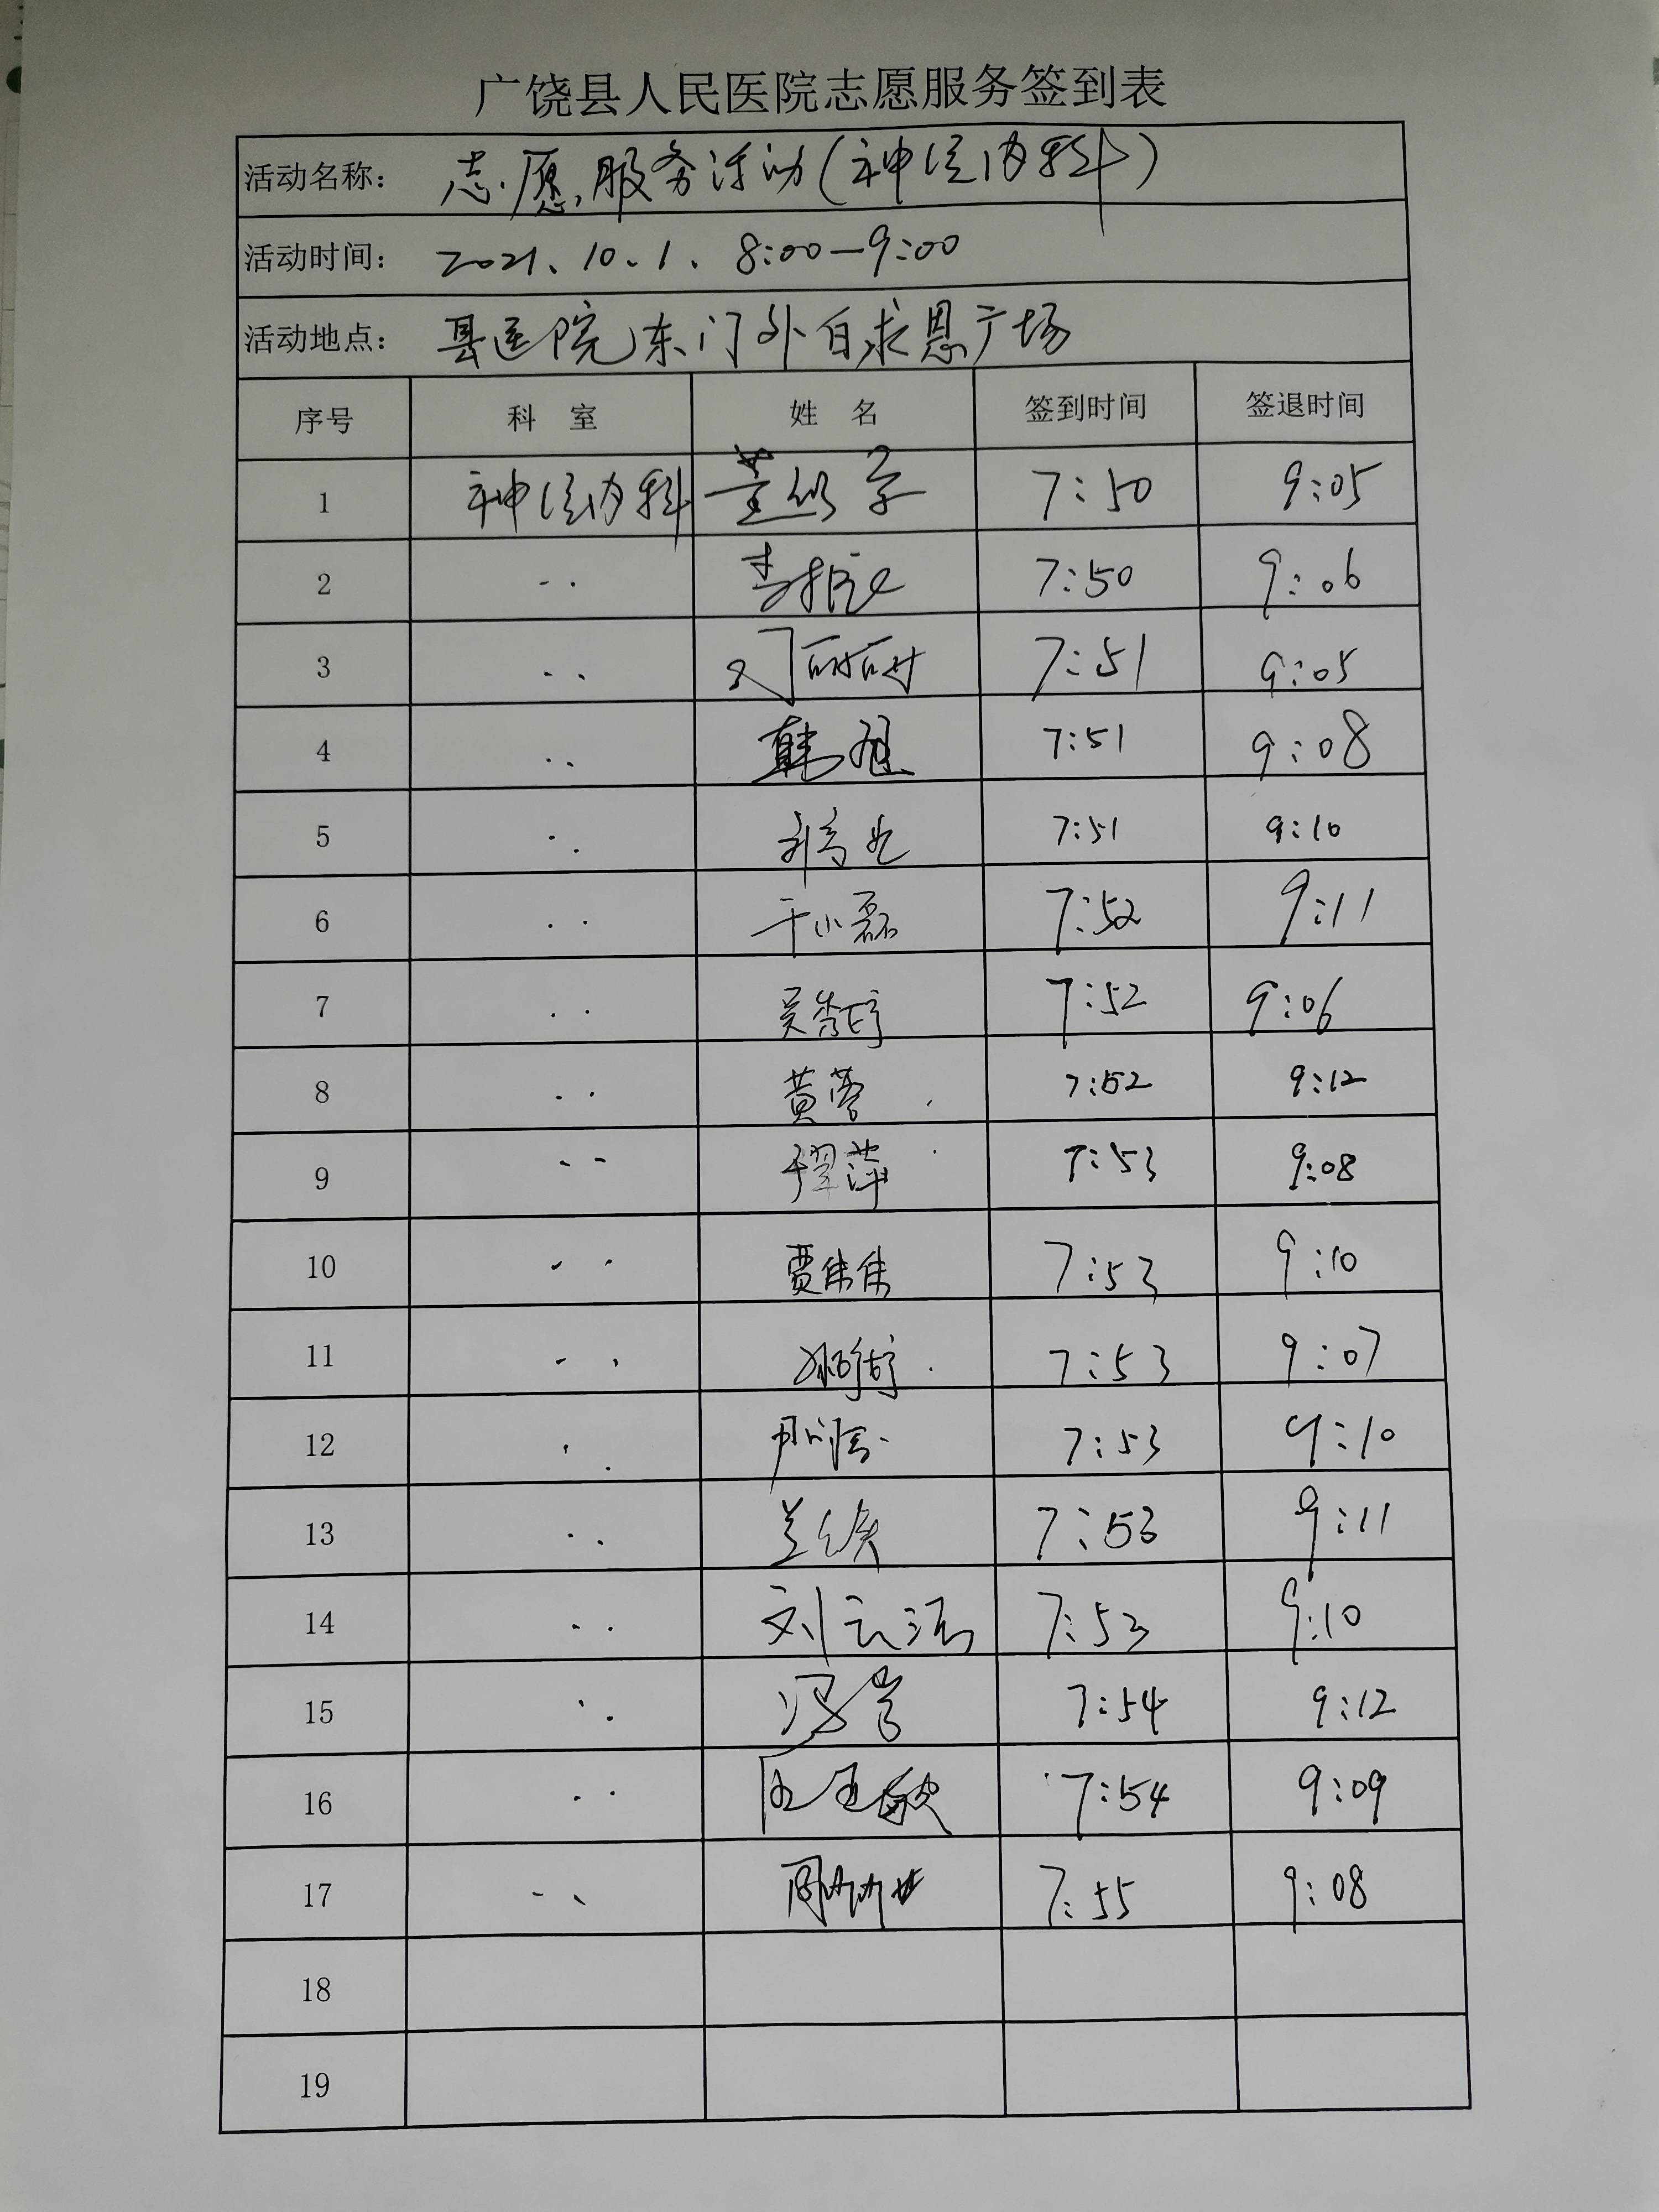 广饶县人民医院志愿服务签到表
活动名称： 志愿服务活动(神经内科)
活动时间： 2021、10、1、8:00—9:00
活动地点： 县医院东门外白求恩广场
序号 科 室 姓 名 签到时间 签退时间
1 神经内科 7:50 9:05
2 〃 7:50 9:06
3 〃 刘丽丽 7:51 9:05
4 〃 韩 7:51 9:08
5 〃 7:51 9:10
6 〃 于小磊 7:52 9:11
7 〃 吴秀婷 7:52 9:06
8 〃 黄蕾 7:52 9:12
9 〃 于翠萍 7:53 9:08
10 〃 贾伟伟 7:53 9:10
11 〃 7:53 9:07
12 〃 7:53 9:10
13 〃 7:53 9:11
14 〃 刘云洁 7:53 9:10
15 〃 7:54 9:12
16 〃 7:54 9:09
17 〃 周 7:55 9:08
18
19